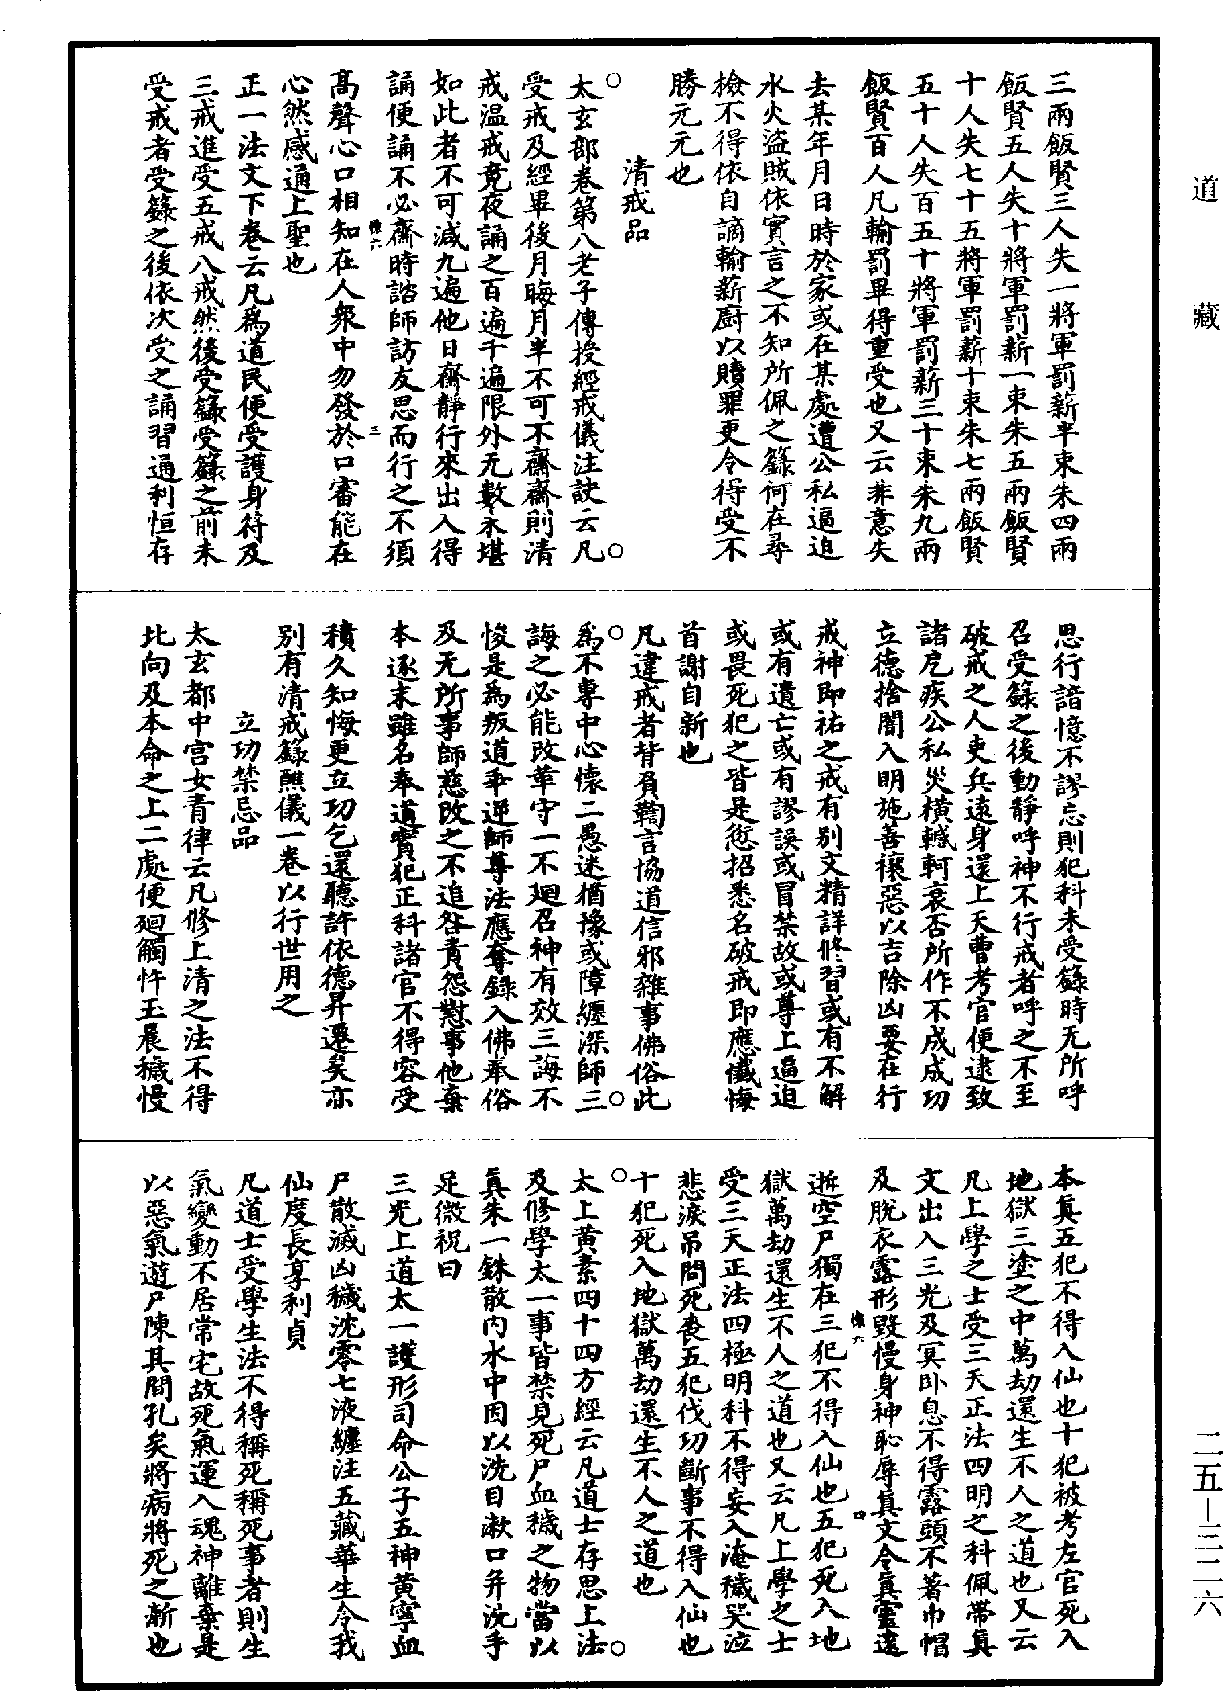 道藏
三兩飯賢三人失一將軍罰薪半束朱四兩
飯賢五人失十將軍罰薪一束朱五兩飯賢
十人失七十五將軍罰薪十束朱七兩飯賢
五十人失百五十將軍罰薪三十束朱九兩
飯賢百人凡輸罰畢得重受也又云非意失
去某年月日時於家或在某處遭公私逼迫
水火盜賊依實言之不知所佩之籙何在尋
檢不得依自謫輸薪厨以贖罪更令得受不
勝元元也
清戒品
太玄部卷第八老子傳授經戒儀注訣云凡
受戒及經畢後月晦月半不可不齋齋則清
戒温戒竟夜誦之百遍千遍限外无數永堪
如此者不可減九遍他日齋靜行來出入得
誦便誦不必齋時諮師訪友思而行之不須
高聲心口相知在人衆中勿發於口審能在
心然感通上聖也
正一法文下卷云凡爲道民便受護身符及
三戒進受五戒八戒然後受籙受籙之前未
受戒者受籙之後依次受之誦習通利恒存
思行諳憶不謬忘則犯科未受籙時无所呼
召受籙之後動靜呼神不行戒者呼之不至
破戒之人吏兵遠身還上天曹考官便逮致
諸戹疾公私災橫轗軻衰否所作不成成功
立德捨闇入明施善禳惡以吉除凶要在行
戒神即祐之戒有别文精詳修習或有不解
或有遺亡或有謬誤或冒禁故或尊上逼迫
或畏死犯之皆是愆招悉名破戒即應懺悔
首謝自新也
凡違戒者背負鞫言協道信邪雜事佛俗此
爲不專中心懷二愚迷猶豫或障纏深師三
誨之必能改革守一不廻召神有效三誨不
悛是爲叛道爭逆師尊法應奪錄入佛奉俗
及无所事師慈改之不追咎責怨懟事他棄
本逐末雖名奉道實犯正科諸官不得容受
積久知悔更立功乞還聽許依德昇遷矣亦
别有清戒籙醮儀一卷以行世用之
立功禁忌品
太玄都中宫女青律云凡修上清之法不得
北向及本命之上二處便廻觸忤玉晨穢慢
本真五犯不得入仙也十犯被考左官死入
地獄三塗之中萬劫還生不人之道也又云
凡上學之士受三天正法四明之科佩帶真
文出入三光及冥卧息不得露頭不著巾帽
及脱衣露形毀慢身神恥辱真文令真靈遠
逝空尸獨在三犯不得入仙也五犯死入地
獄萬劫還生不人之道也又云凡上學之士
受三天正法四極明科不得妄入淹穢哭泣
悲淚吊問死喪五犯伐功斷事不得入仙也
十犯死入地獄萬劫還生不人之道也
太上黄素四十四方經云凡道士存思上法
及修學太一事皆禁見死尸血穢之物當以
真朱一銖散内水中因以洗目漱口并洗手
足微祝曰
三光上道太一護形司命公子五神黄寧血
尸散滅凶穢沈零七液纏注五藏華生令我
仙度長享利貞
凡道士受學生法不得稱死稱死事者則生
氣變動不居常宅故死氣運入魂神離棄是
以惡氣遊尸陳其間孔矣將病將死之漸也
二五—三二六